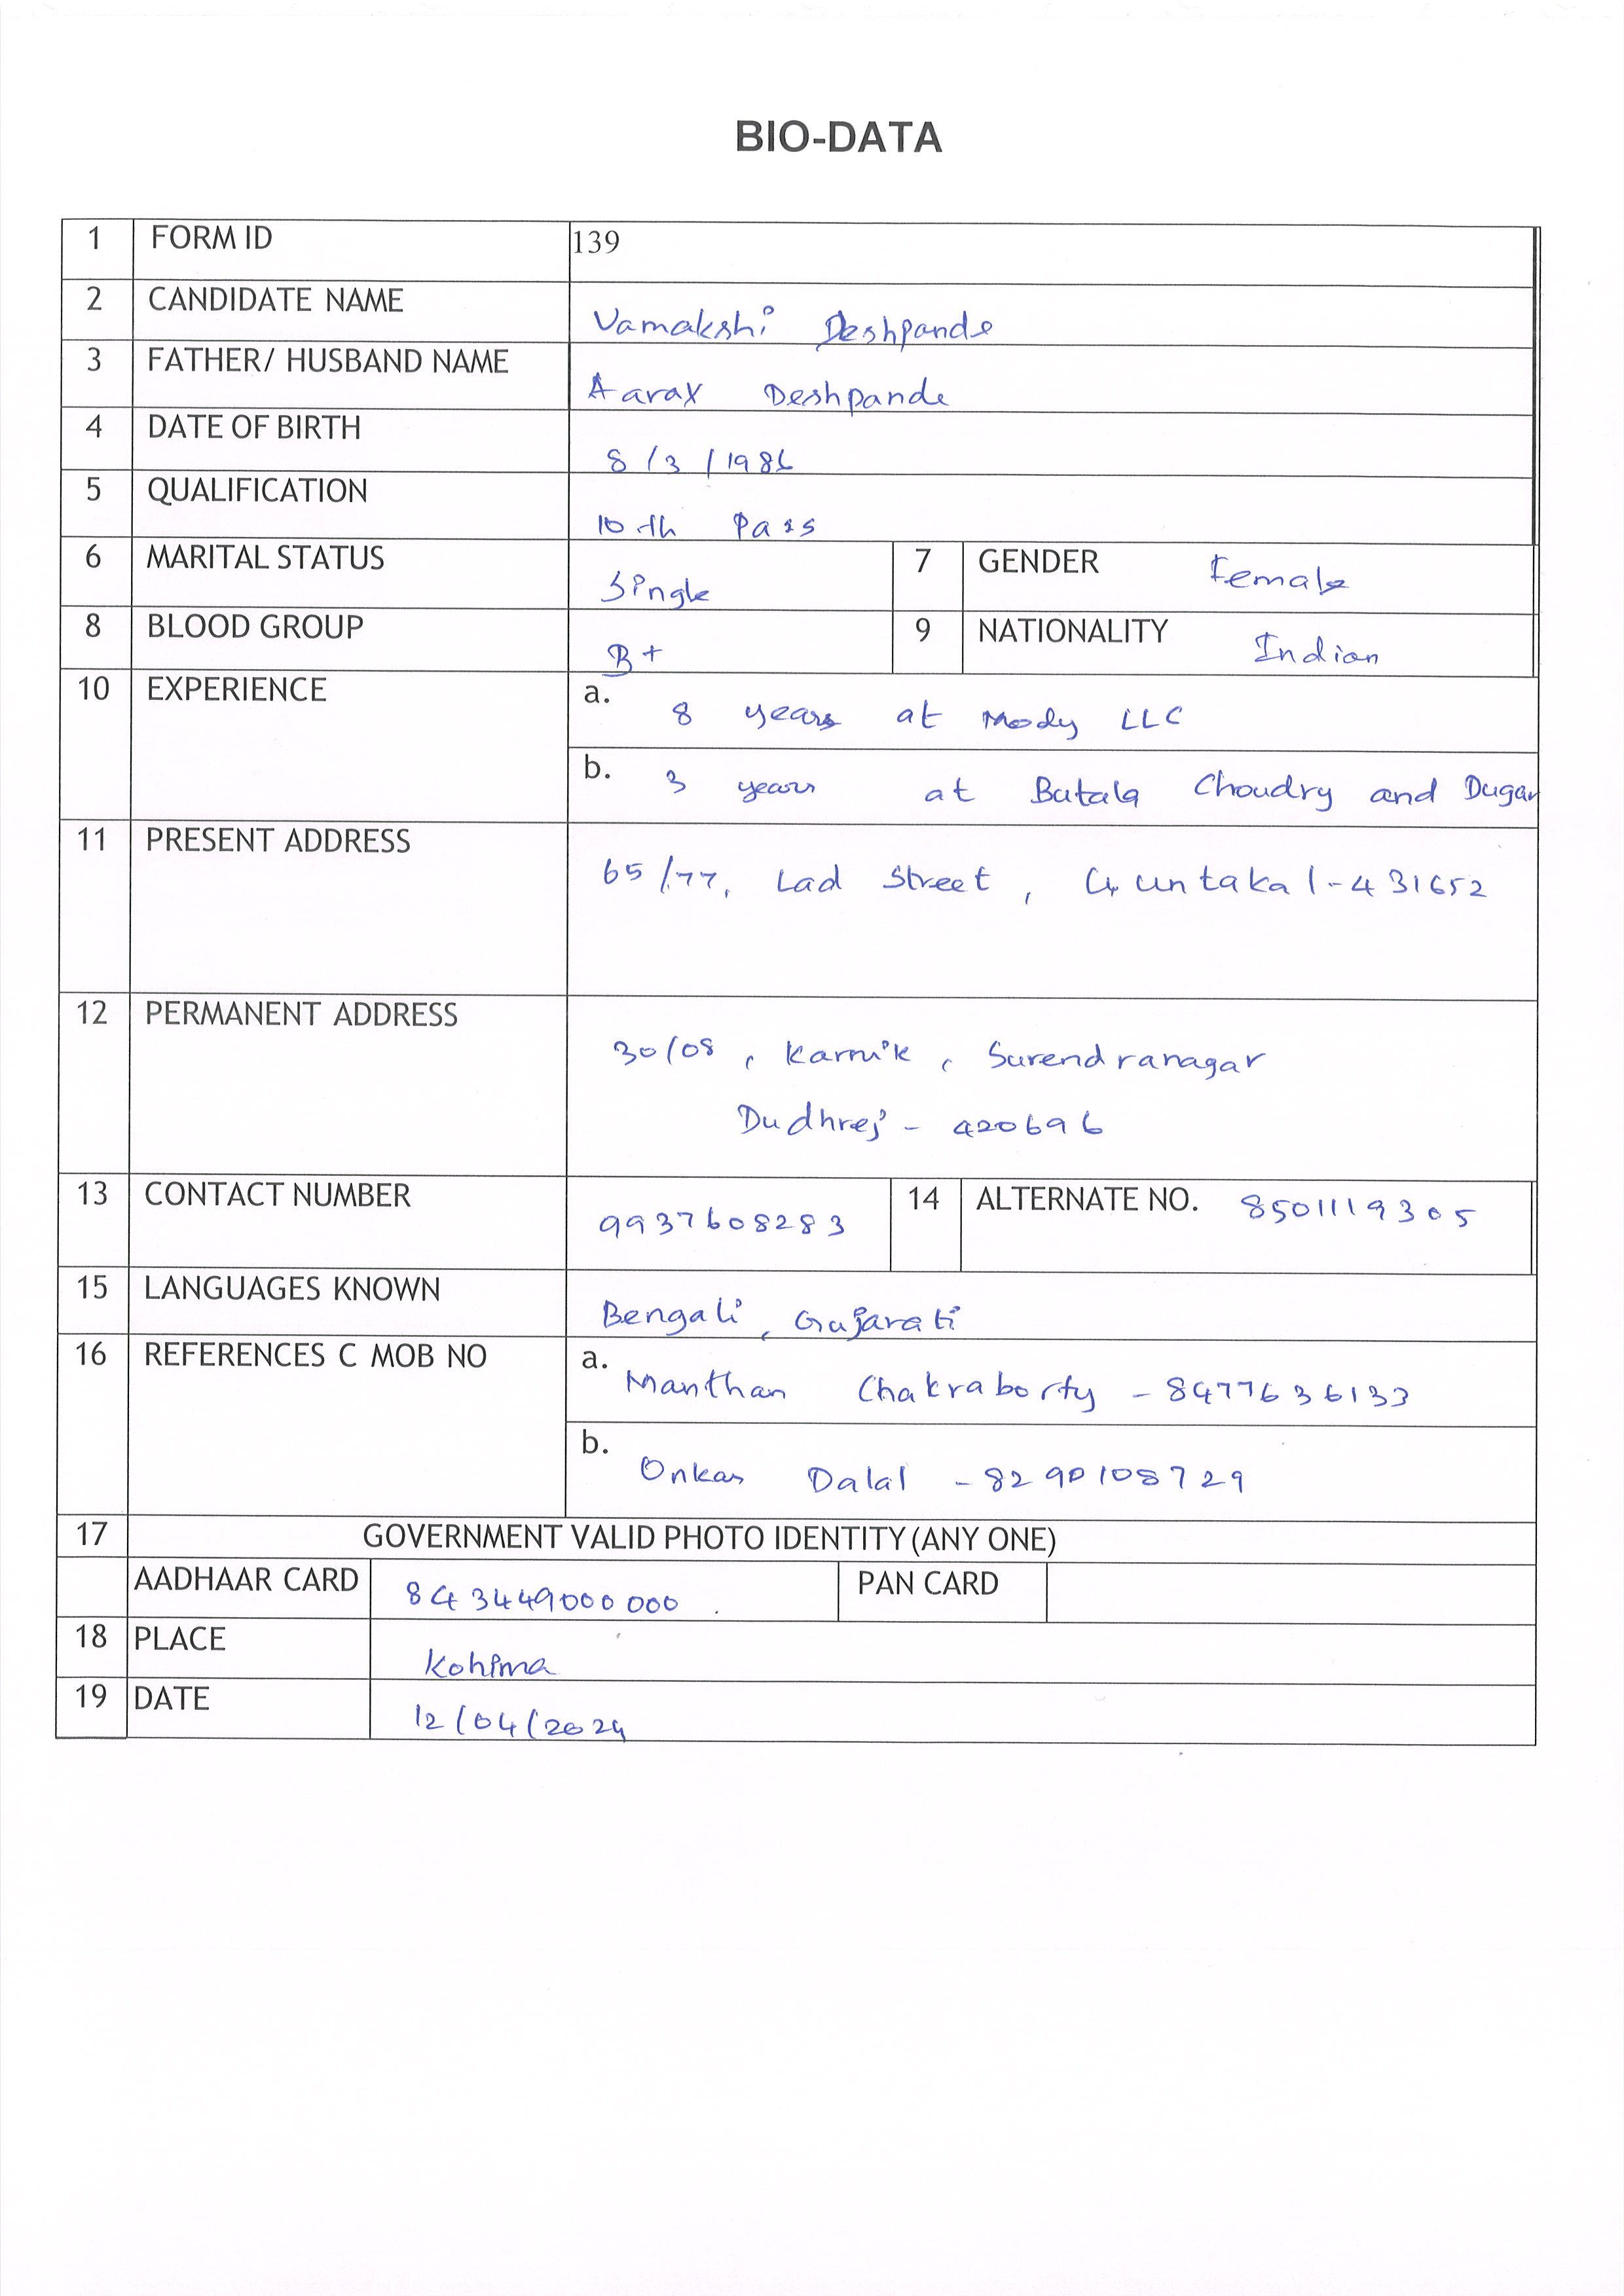 BIO-DATA
1 FORM ID 139
2 CANDIDATE NAME Vamakshi Deshpande
3 FATHER/ HUSBAND NAME Aarax Deshpande
4 DATE OF BIRTH 8/3/1986
5 QUALIFICATION 10th Pass
6 MARITAL STATUS Single 7 GENDER Female
8 BLOOD GROUP B+ 9 NATIONALITY Indian
10 EXPERIENCE a. 8 years at Mody LLC
b. 3 years at Butala Choudry and Dugar
11 PRESENT ADDRESS 65/77, Lad Street, Guntakal-431652
12 PERMANENT ADDRESS 30/08, Karnik, Surendranagar
Dudhrej - 420696
13 CONTACT NUMBER 9937608283 14 ALTERNATE NO. 8501119305
15 LANGUAGES KNOWN Bengali, Gujarati
16 REFERENCES C MOB NO a. Manthan Chakraborty - 8477636133
b. Onkar Dalal - 8290108729
17 GOVERNMENT VALID PHOTO IDENTITY (ANY ONE)
AADHAAR CARD 843449000000 PAN CARD
18 PLACE Kohima
19 DATE 12/04/2024